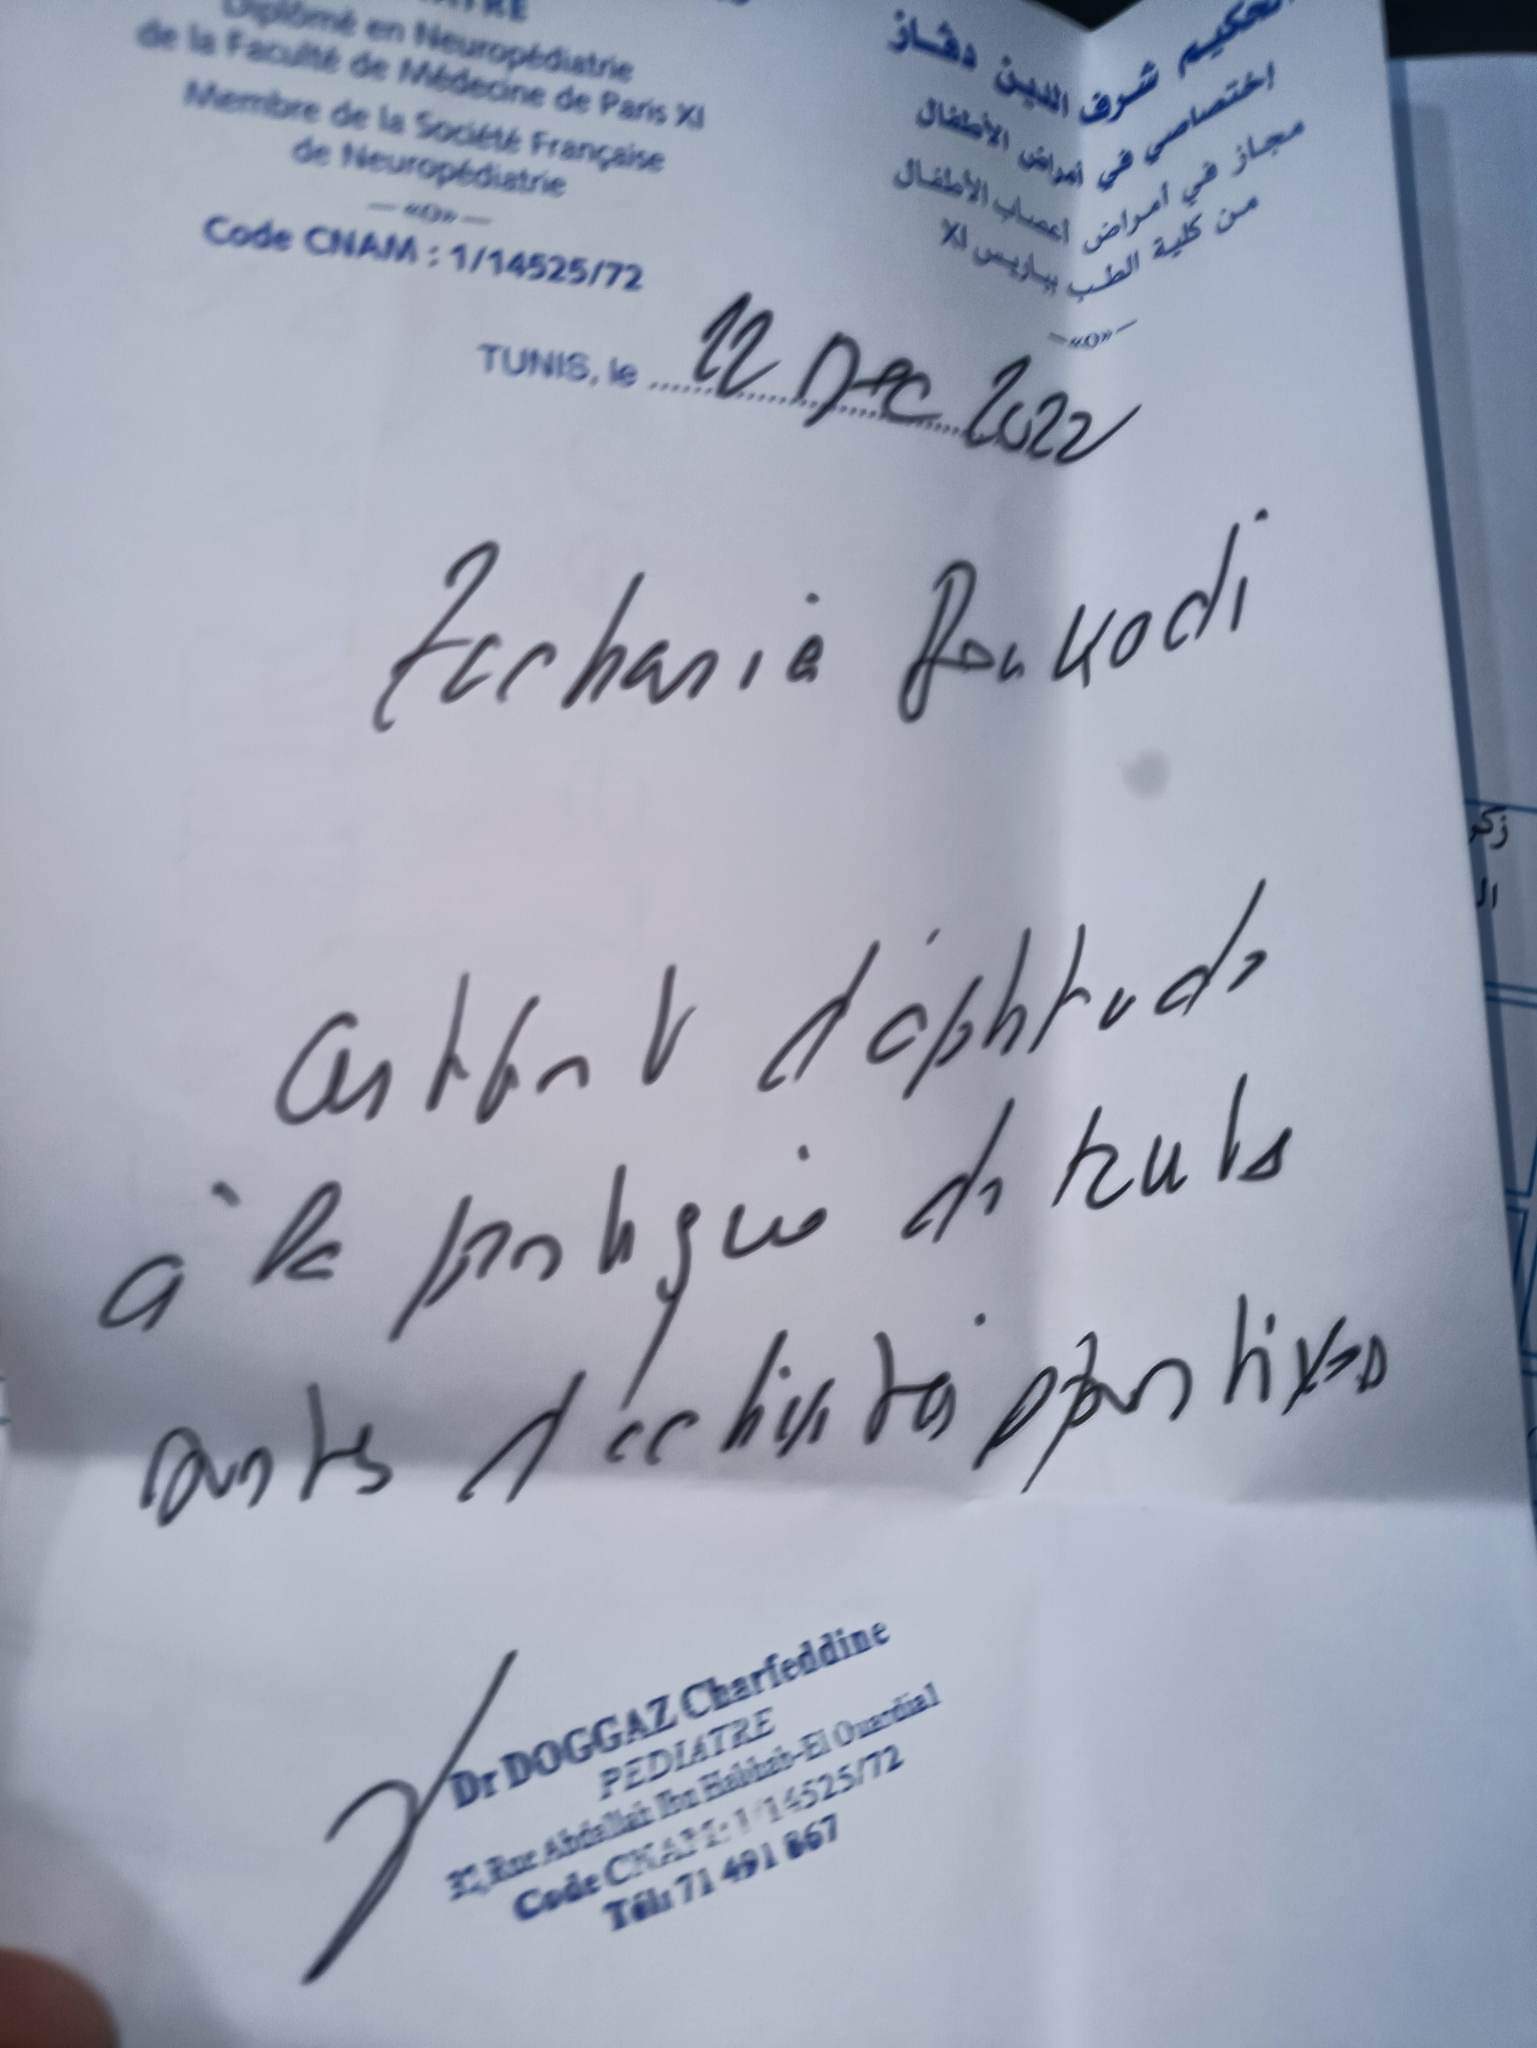 Diplômé en Neuropédiatrie
de la Faculté de Médecine de Paris XI
Membre de la Société Française
de Neuropédiatrie
—«o»—
Code CNAM : 1/14525/72
الحكيم شرف الدين دقاز
إختصاصي في أمراض الأطفال
مجاز في أمراض أعصاب الأطفال
من كلية الطب بباريس XI
—«o»—
TUNIS, le 12 Dec 2022
Zacharia Boukadi
Certificat d'aptitude
à la pratique de toutes
sortes d'activités sportives
Dr DOGGAZ Charfeddine
PEDIATRE
Rue Abdallah Ibn Habhab-El Ouardia1
Code CNAM: 1/14525/72
Tél: 71 491 867